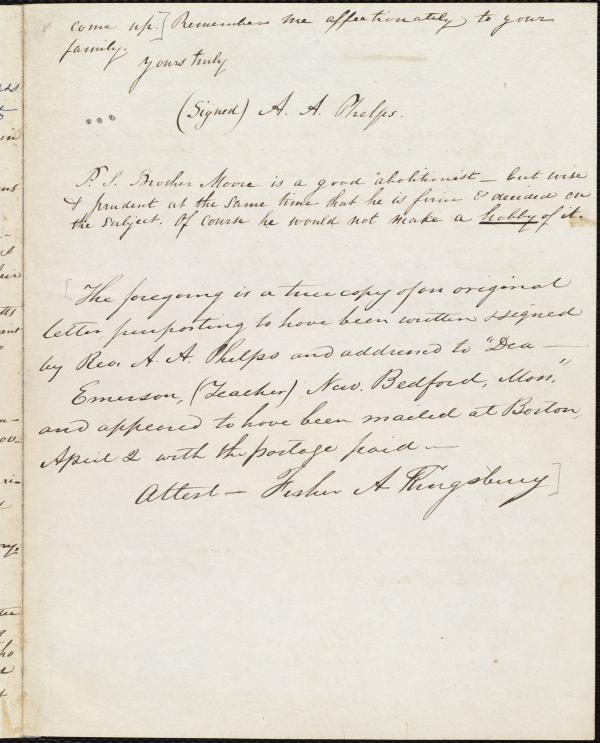 come up.] Remember me affectionately to your
family.
Yours truly
(Signed) A. A. Phelps.
P. S. Brother Moore is a good abolitionist — but wise
& prudent at the same time that he is firm & decided on
the subject. Of course he would not make a hobby of it.
[The foregoing is a true copy of an original
letter purporting to have been written & signed
by Rev. A. A. Phelps and addressed to "Dea —
Emerson, (Teacher) New. Bedford, Mass,"
and appeared to have been mailed at Boston,
April 2 with the postage paid —
Attest — Fisher A Kingsbury]